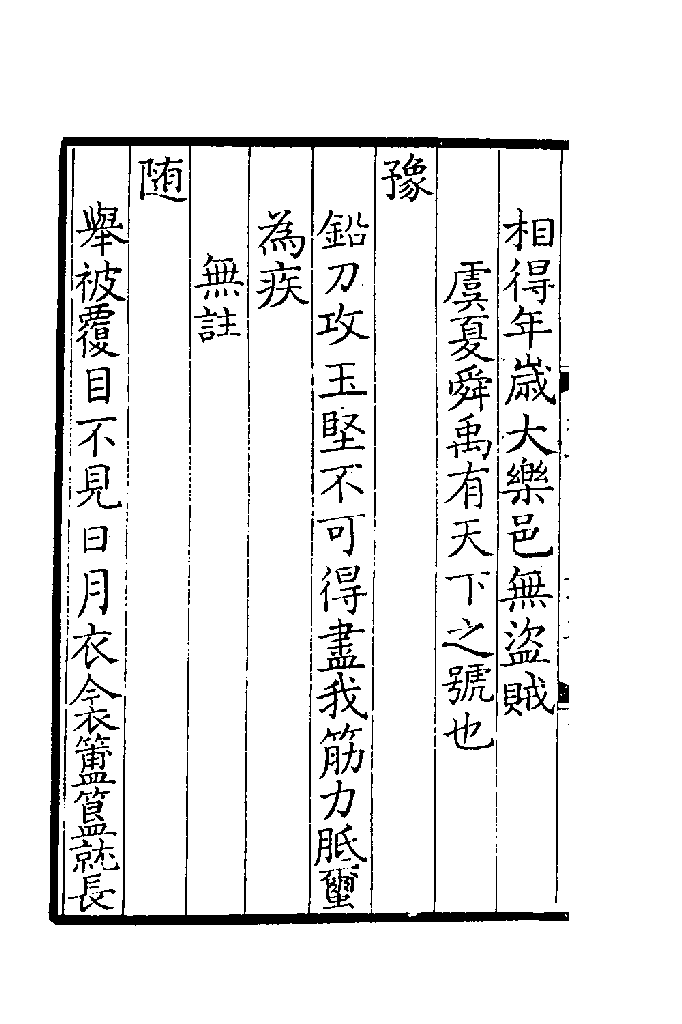 相得年歳大樂邑無盜賊
虞夏舜禹有天下之號也
豫
鉛刀攻玉堅不可得盡我筋力胝蠒
為疾
無註
随
舉被覆目不見日月衣衾簠簋就長